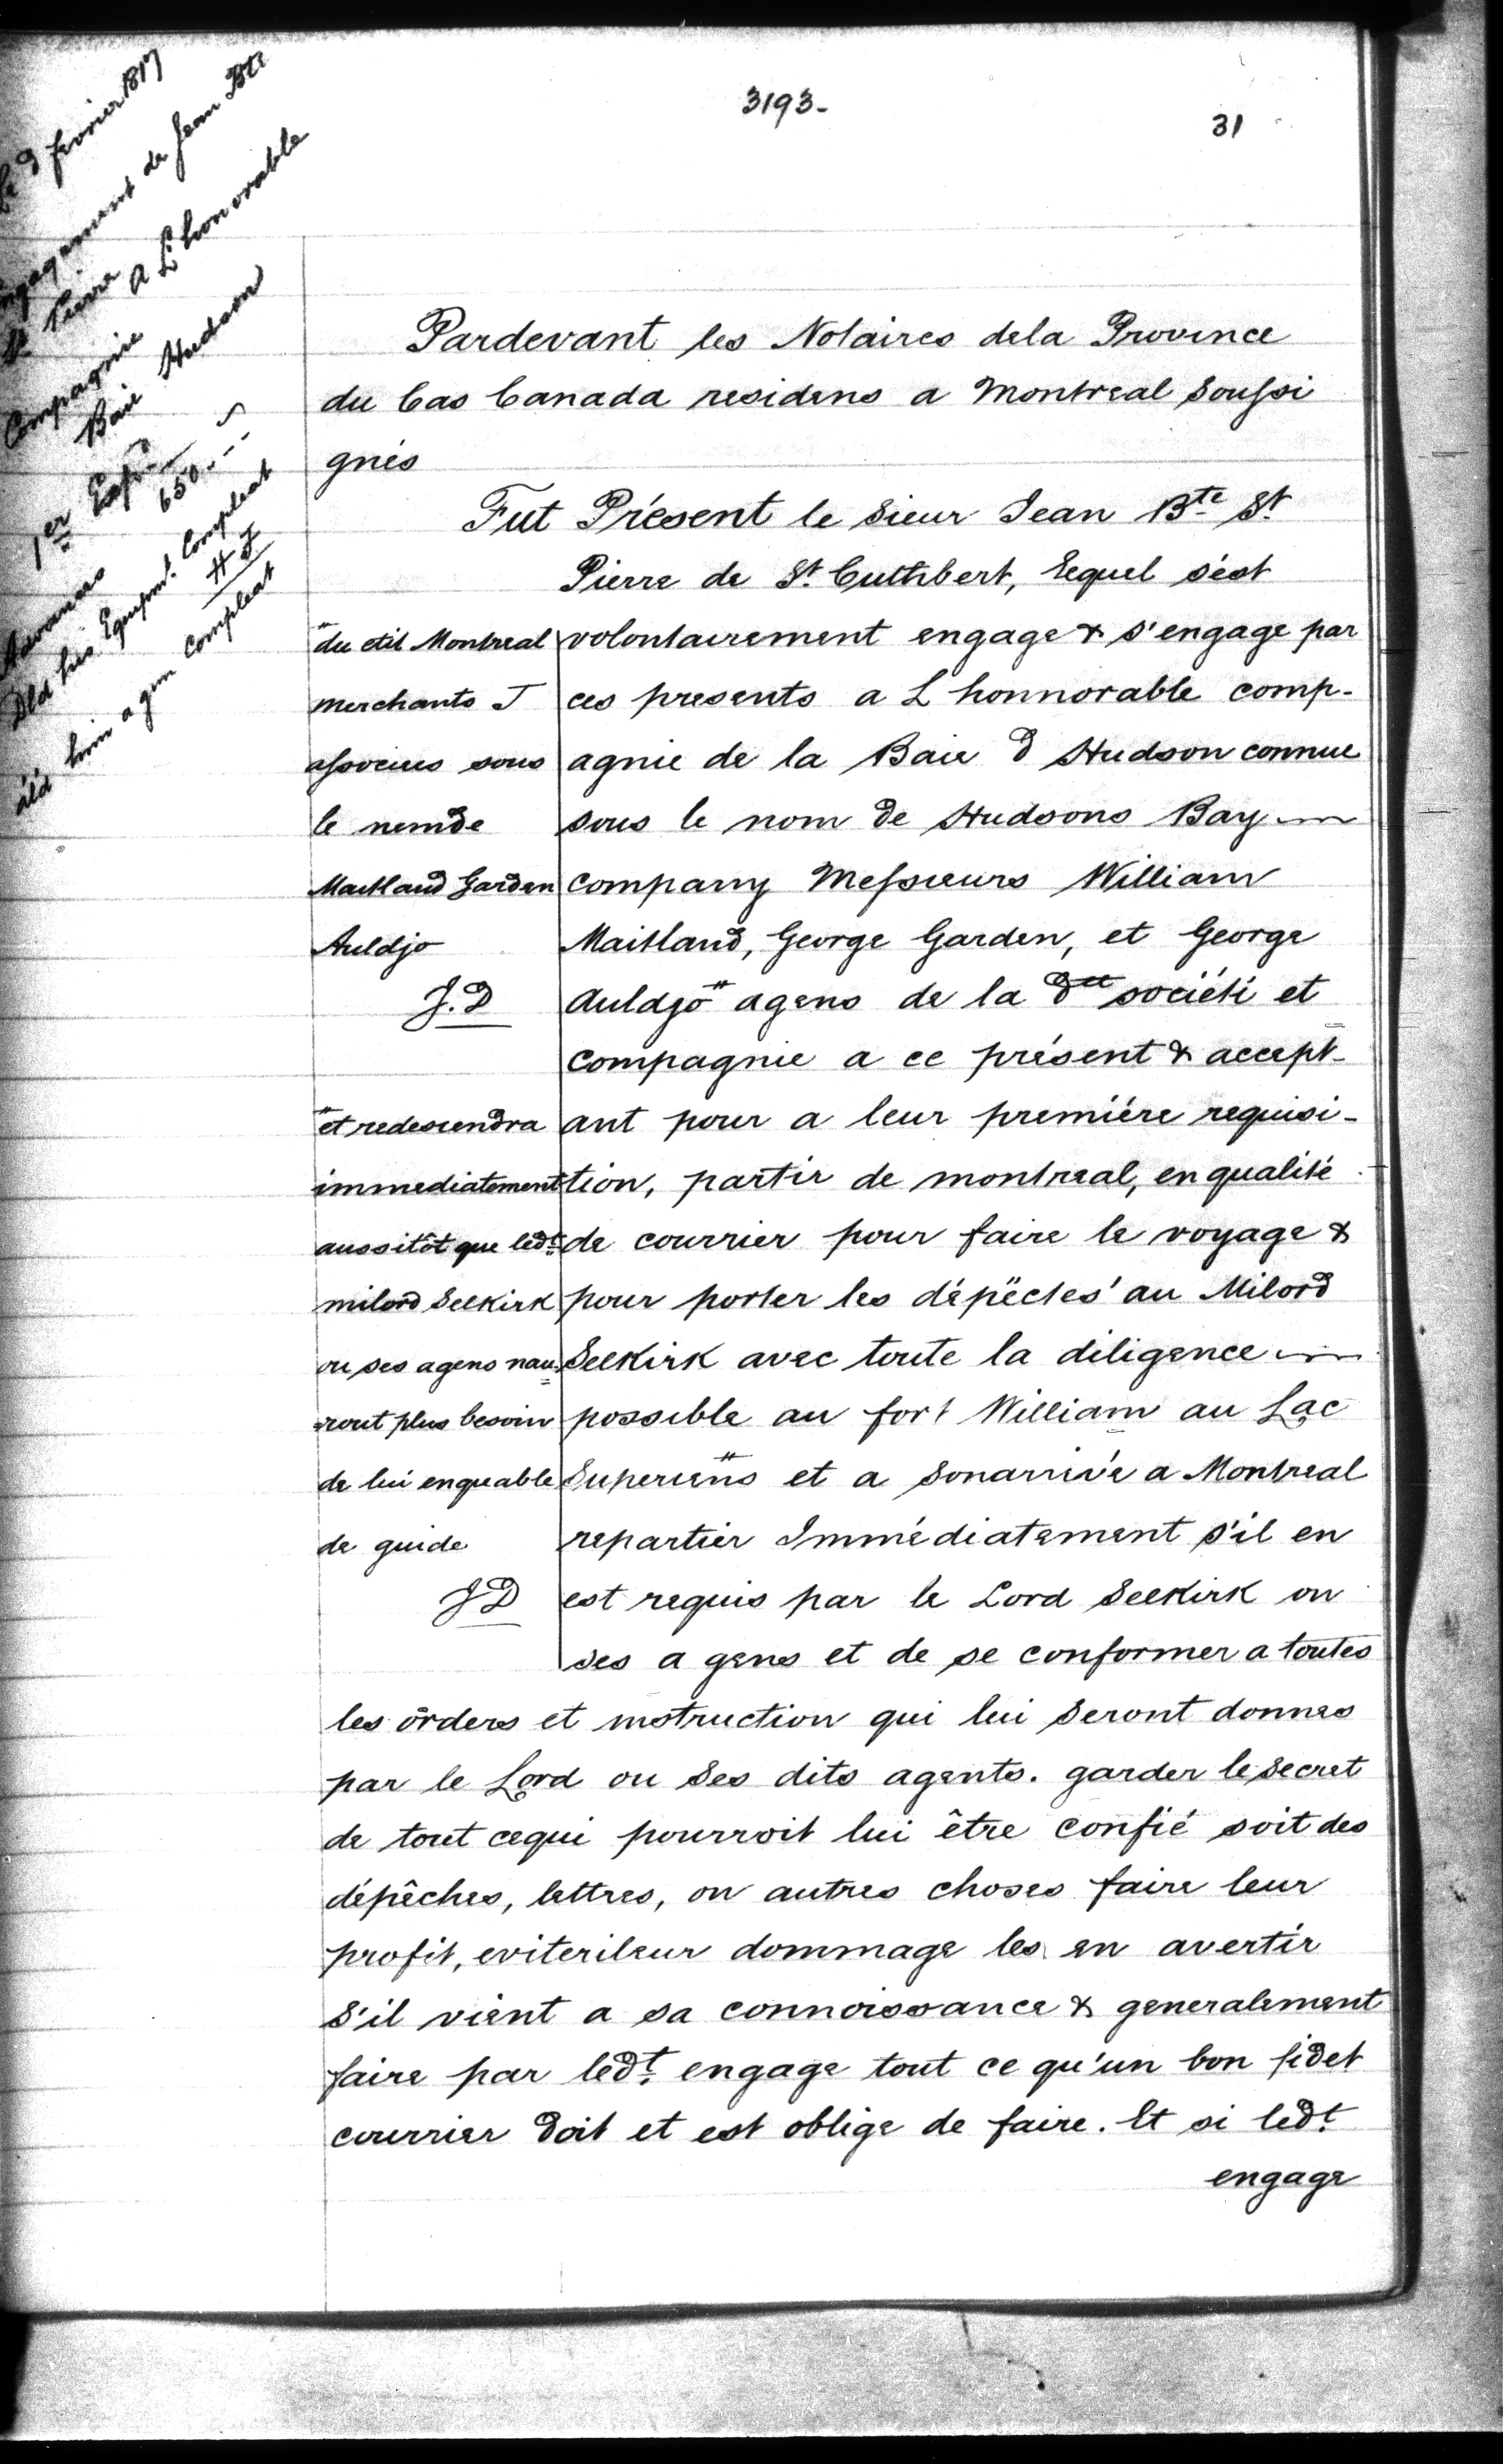 3193-
31
Le 3 fevrier 1817
Engagement de Jean Bte
St Pierre A L'honorable
Compagnie
Baie Hudson
1er
650.--
Avances
Dld his Equipmt. Compleat
HJ
him a gun compleat
Pardevant les Notaires dela Province
du bas Canada residens a Montreal Soussi
gnés
Fut Présent le Sieur Jean Bte St
Pierre de St Cuthbert, Lequel s'est
volontairement engage & s'engage par
ces presents a L honnorable comp-
agnie de la Baie d Hudson connue
sous le nom de Hudsons Bay
Company Messieurs William
Maitland, George Garden, et George
Auldjo" agens de la dte société et
compagnie a ce présent & accept-
ant pour a leur première requisi-
tion, partir de montreal, en qualité
de courrier pour faire le voyage &
pour porter les dépêches au Milord
Selkirk avec toute la diligence
possible au fort William au Lac
Superiens" et a Sonarrivé a Montreal
repartir Immédiatement s'il en
est requis par le Lord Selkirk on
ses a gens et de se conformer a toutes
"du dit Montreal
merchants J
associes sous
le nemde
Maitland Garden
Auldjo
J.D
"et redescendra
immediatement
aussitôt que ledt
milord Selkirk
ou ses agens nau-
-ront plus besoin
de lui enqueable
de guide
JD
les orders et instruction qui lui Seront donnes
par le Lord ou Ses dits agents. garder le Secret
de tout cequi pourroit lui être confié soit des
dépêches, lettres, on autres choses faire leur
profit, eviterleur dommage les en avertir
S'il vient a sa connoissance & generalement
faire par ledt. engage tout ce qu'un bon fidet
courrier doit et est oblige de faire. Et si ledt.
engage